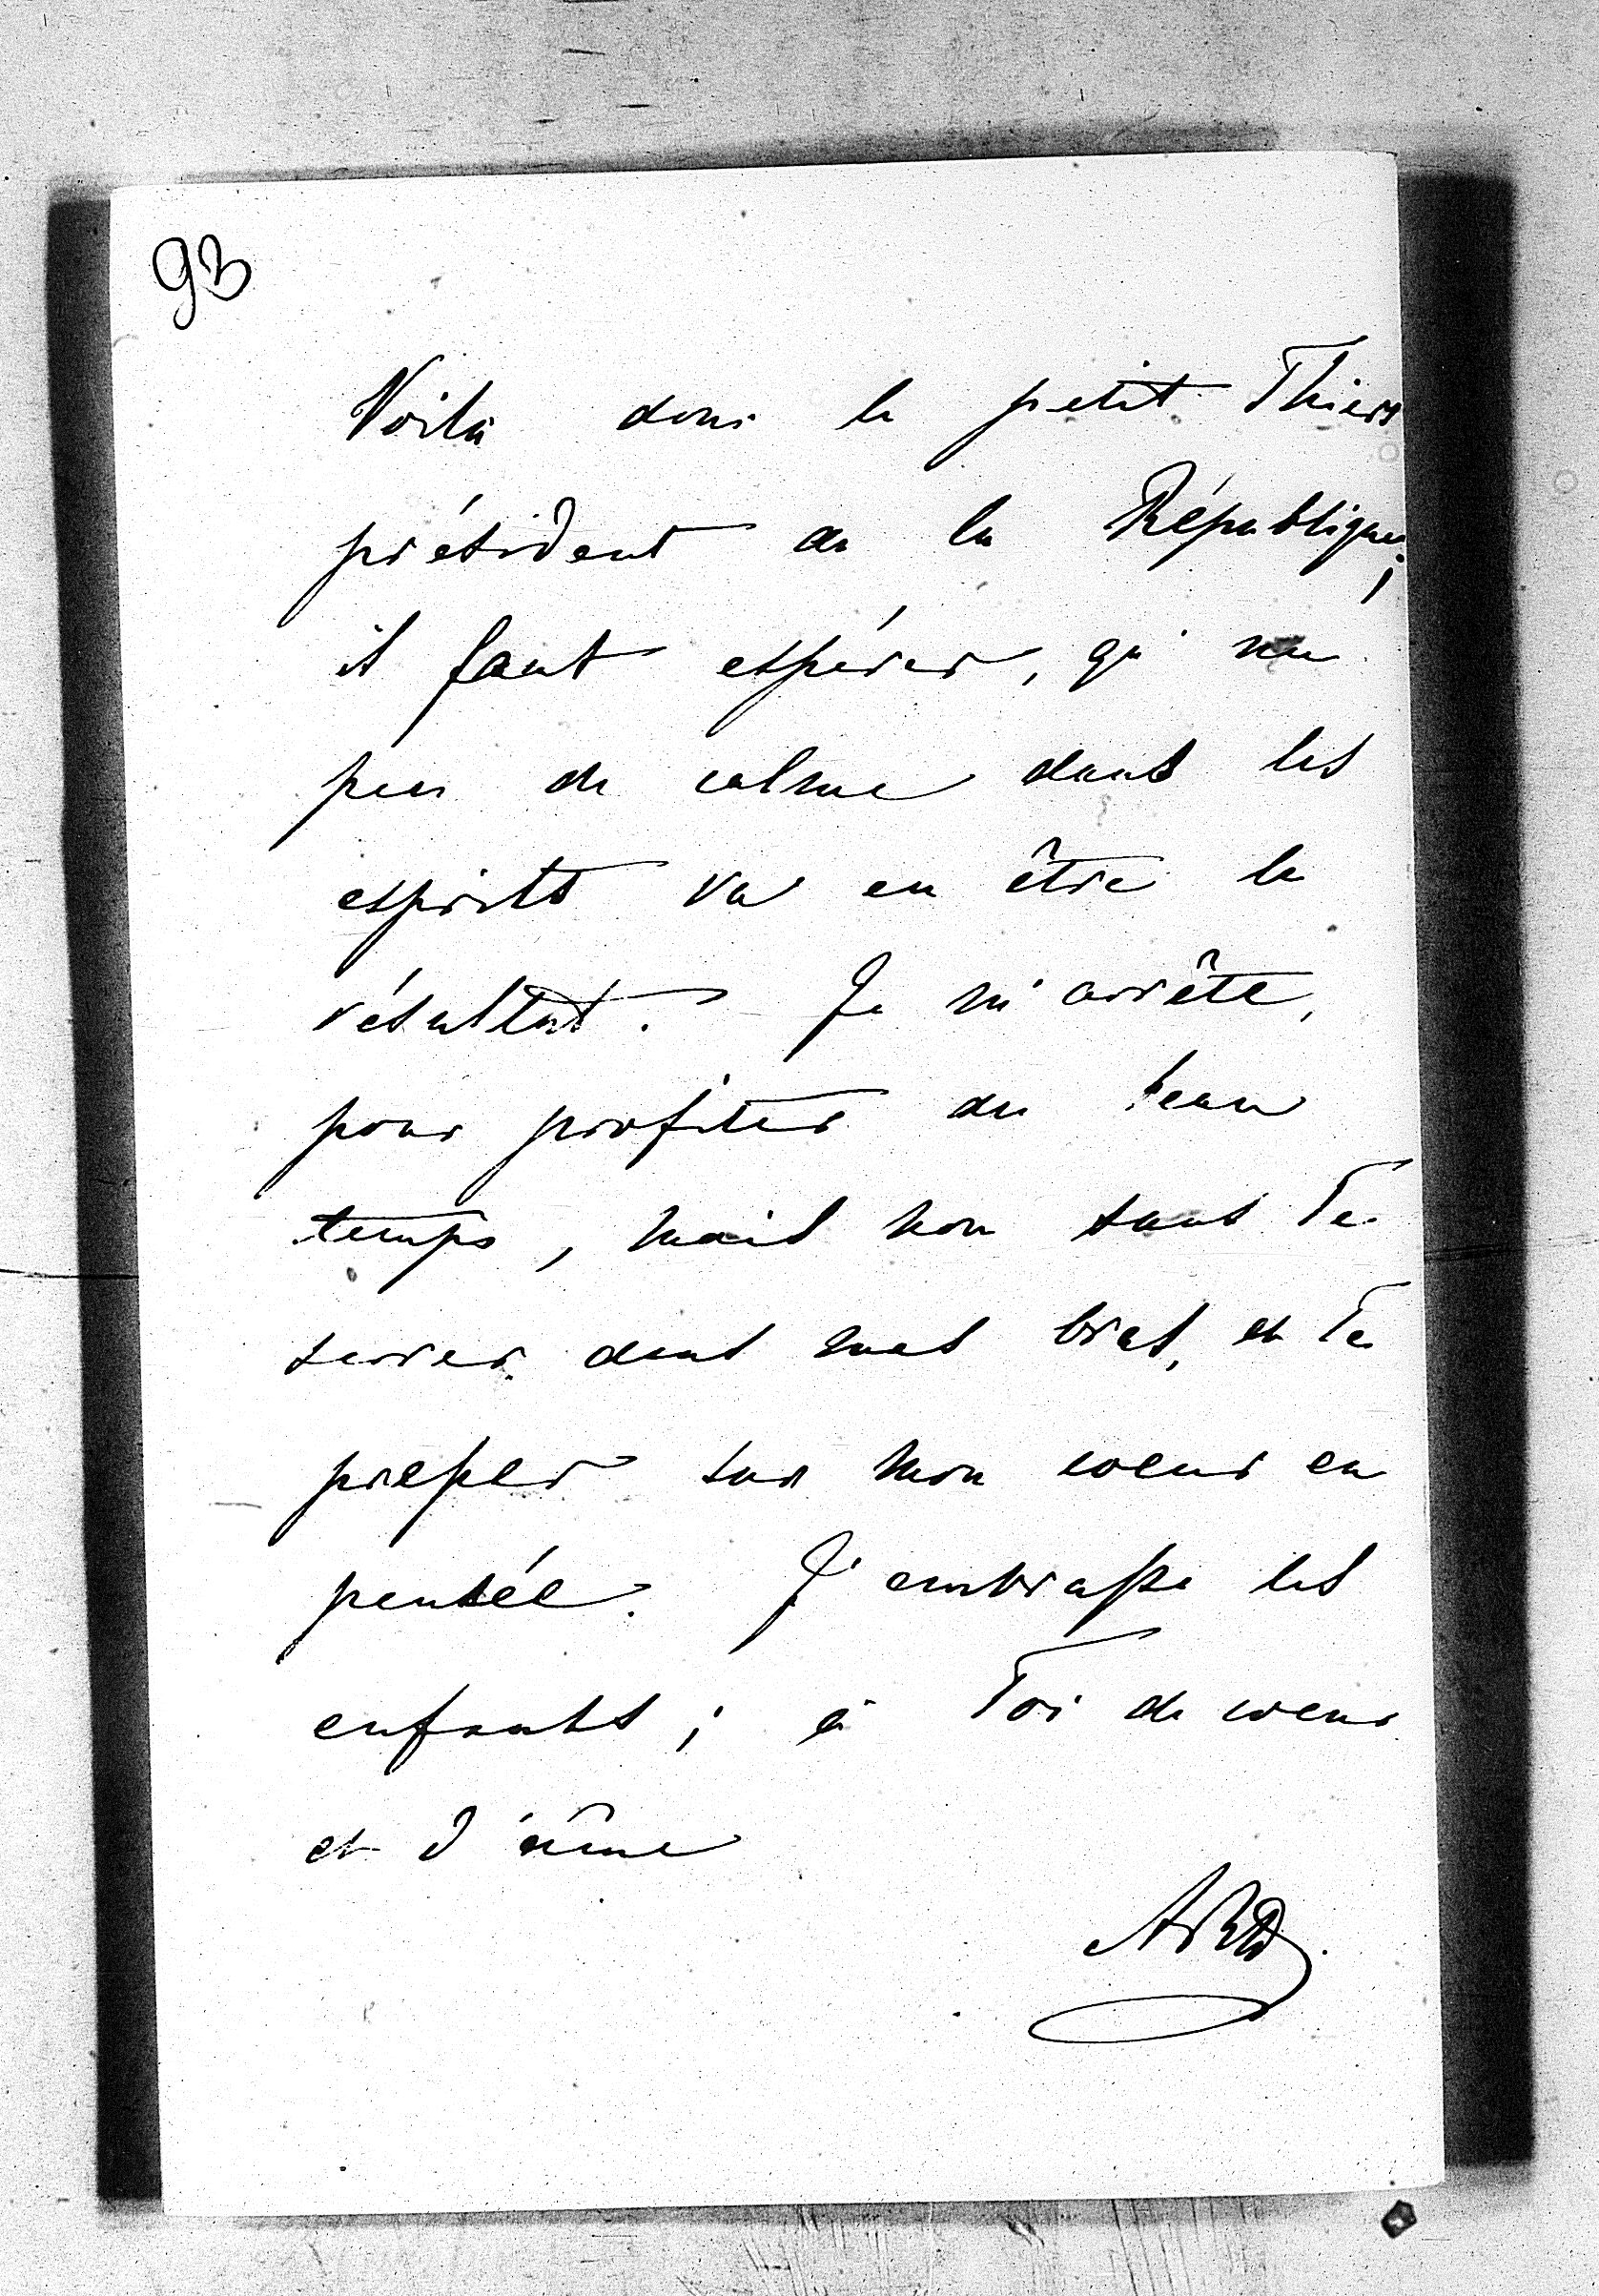 93
Voilà donc le petit Thiers
président de la République;
il faut espérer, qu'un
peu de calme dans les
esprits va en être le
résultat. Je m'arrête,
pour profiter du beau
temps, mais non sans Te
serrer dans mes bras, et Te
presser sur mon coeur en
pensée. J'embrasse les
enfants; à Toi de coeur
et d'âme